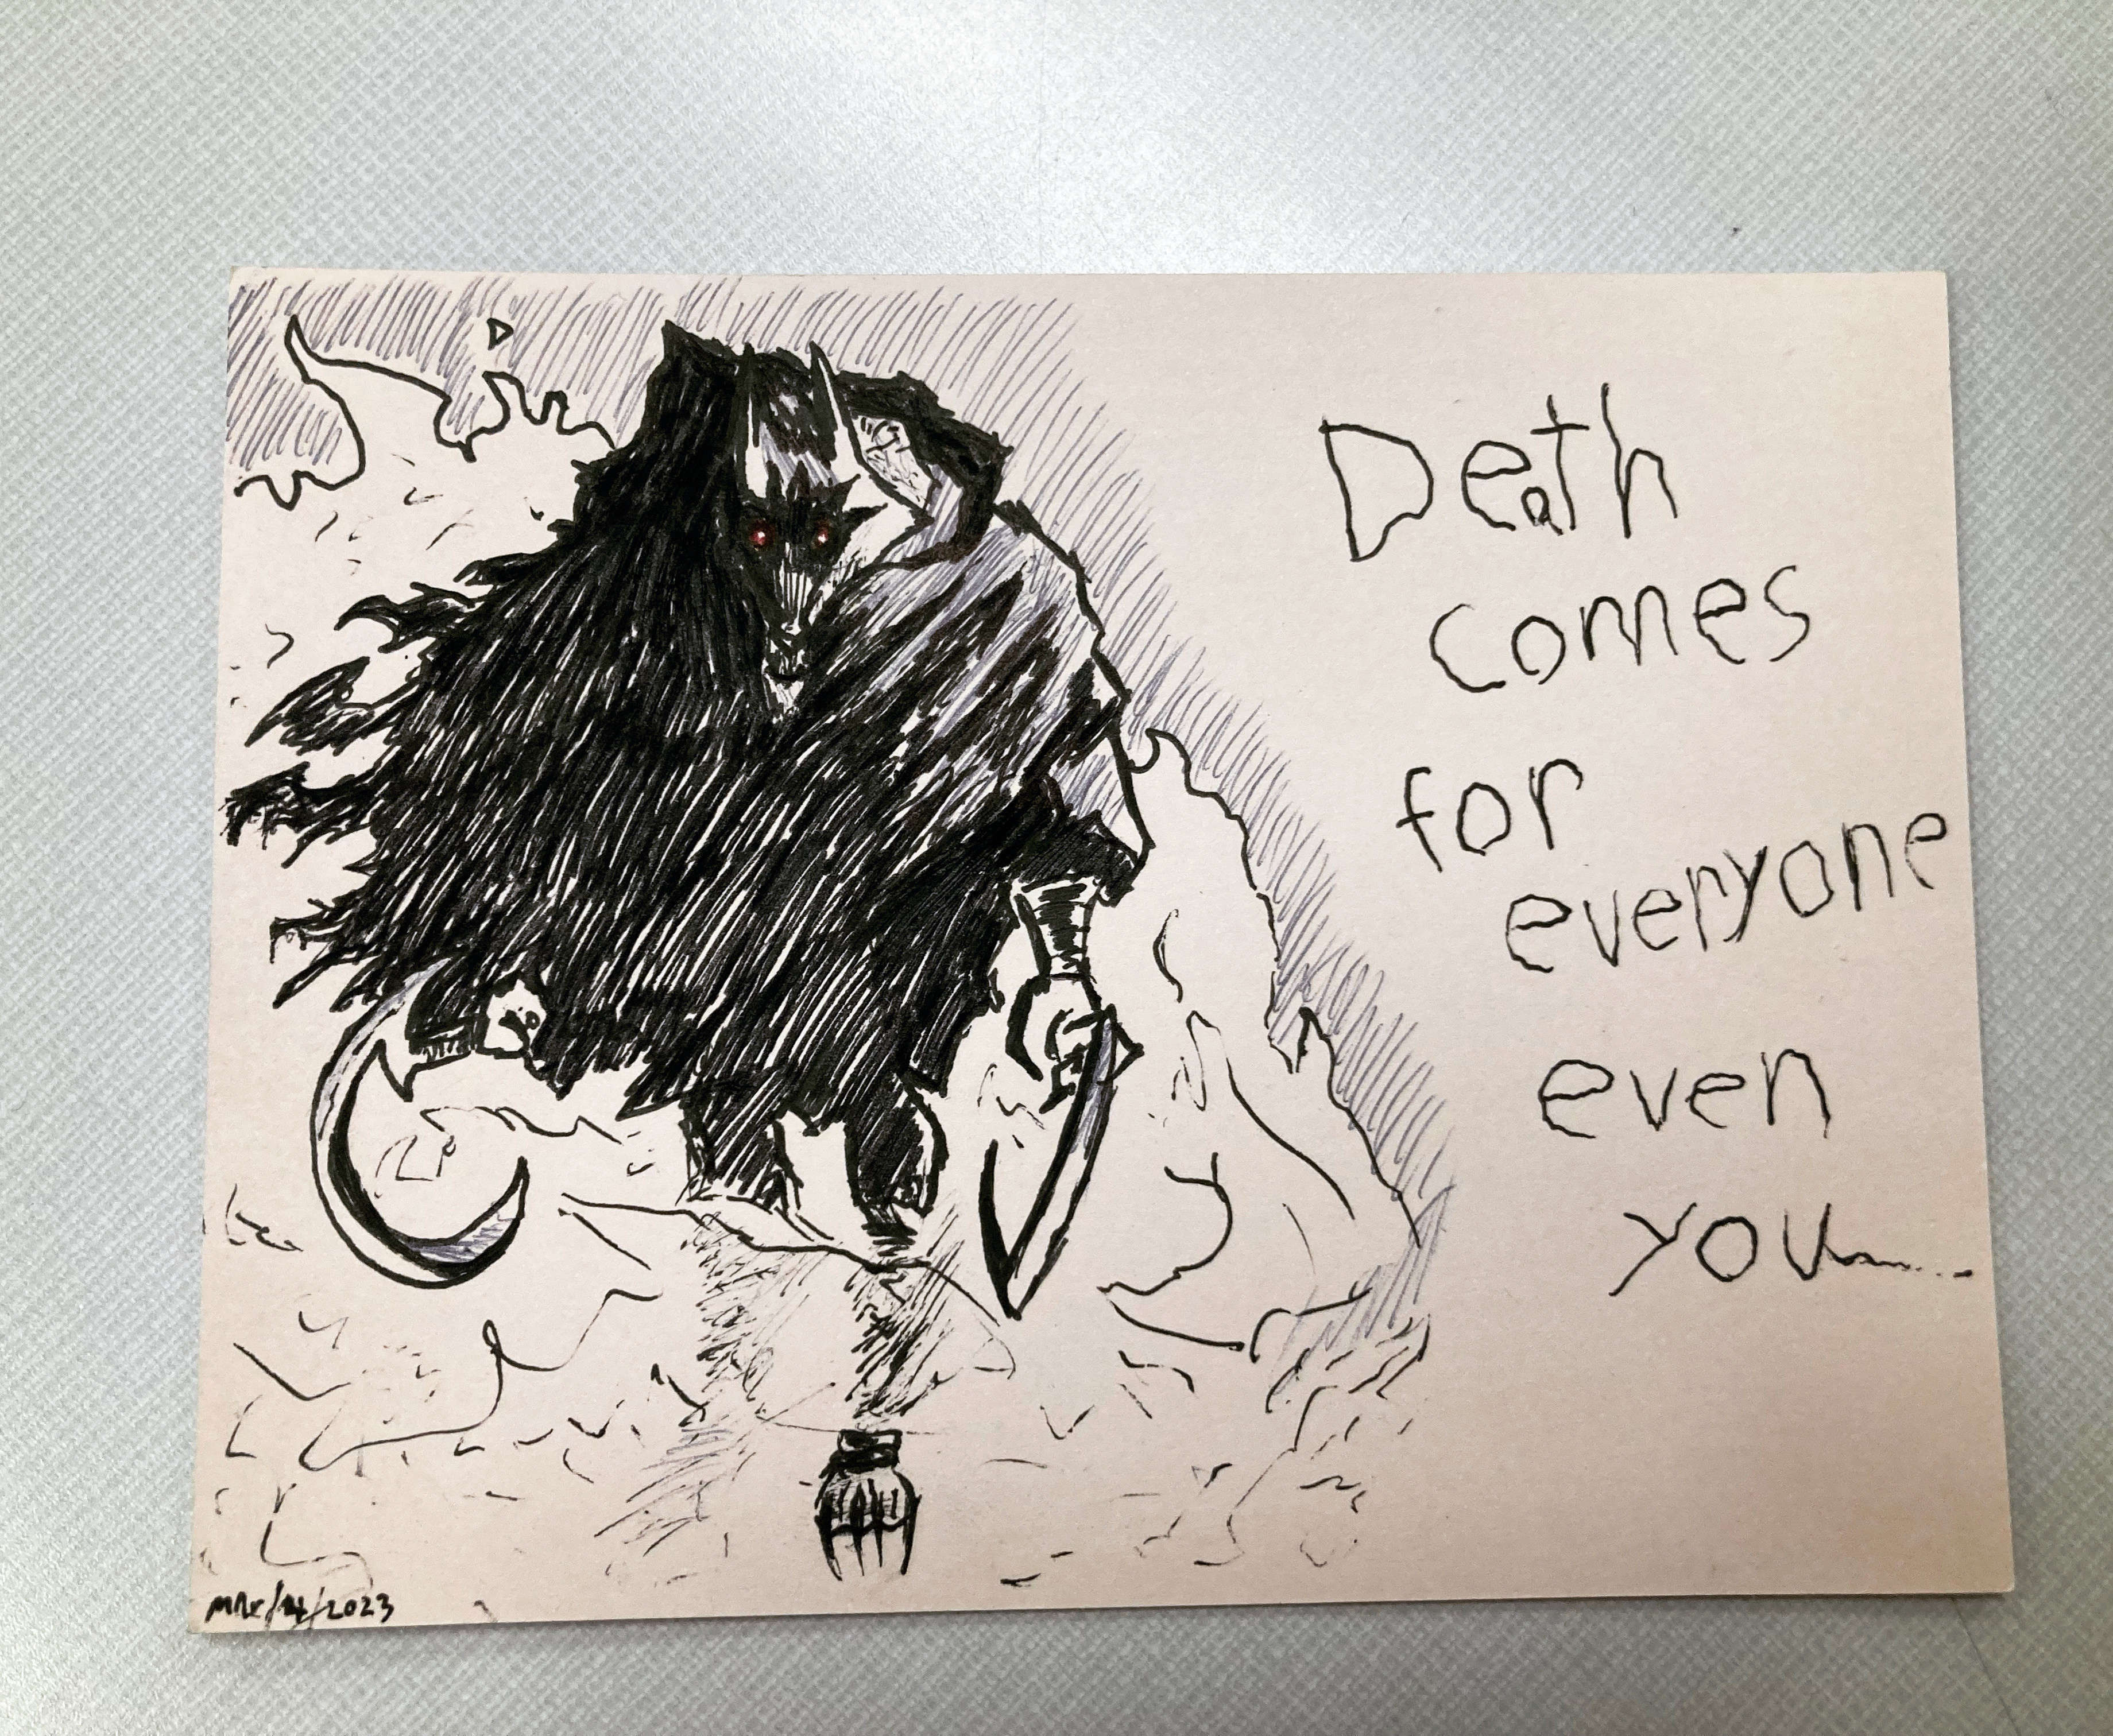 Death
comes
for
everyone
even
you....
Mar/14/2023